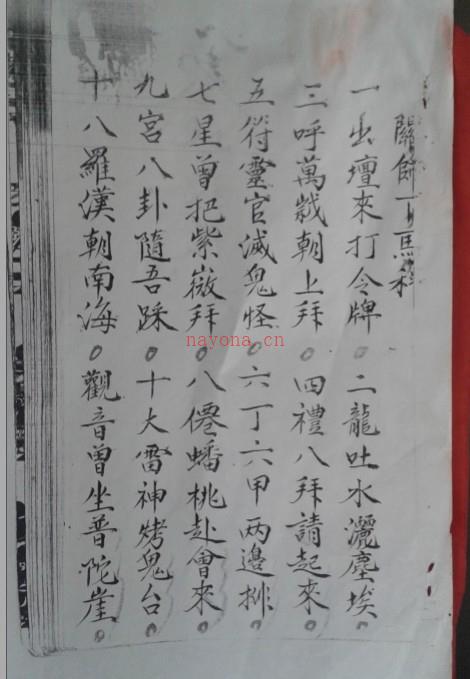 關帥下馬科
一出壇來打令牌。二龍吐水灑塵埃。
三呼萬歲朝上拜。四禮八拜請起來。
五符靈官滅鬼怪。六丁六甲两邊排。
七星曾把紫微拜。八僊蟠桃赴會來。
九宮八卦隨吾踩。十大雷神烤鬼台。
十八羅漢朝南海。觀音曾坐普陀崖。
nayona.cn